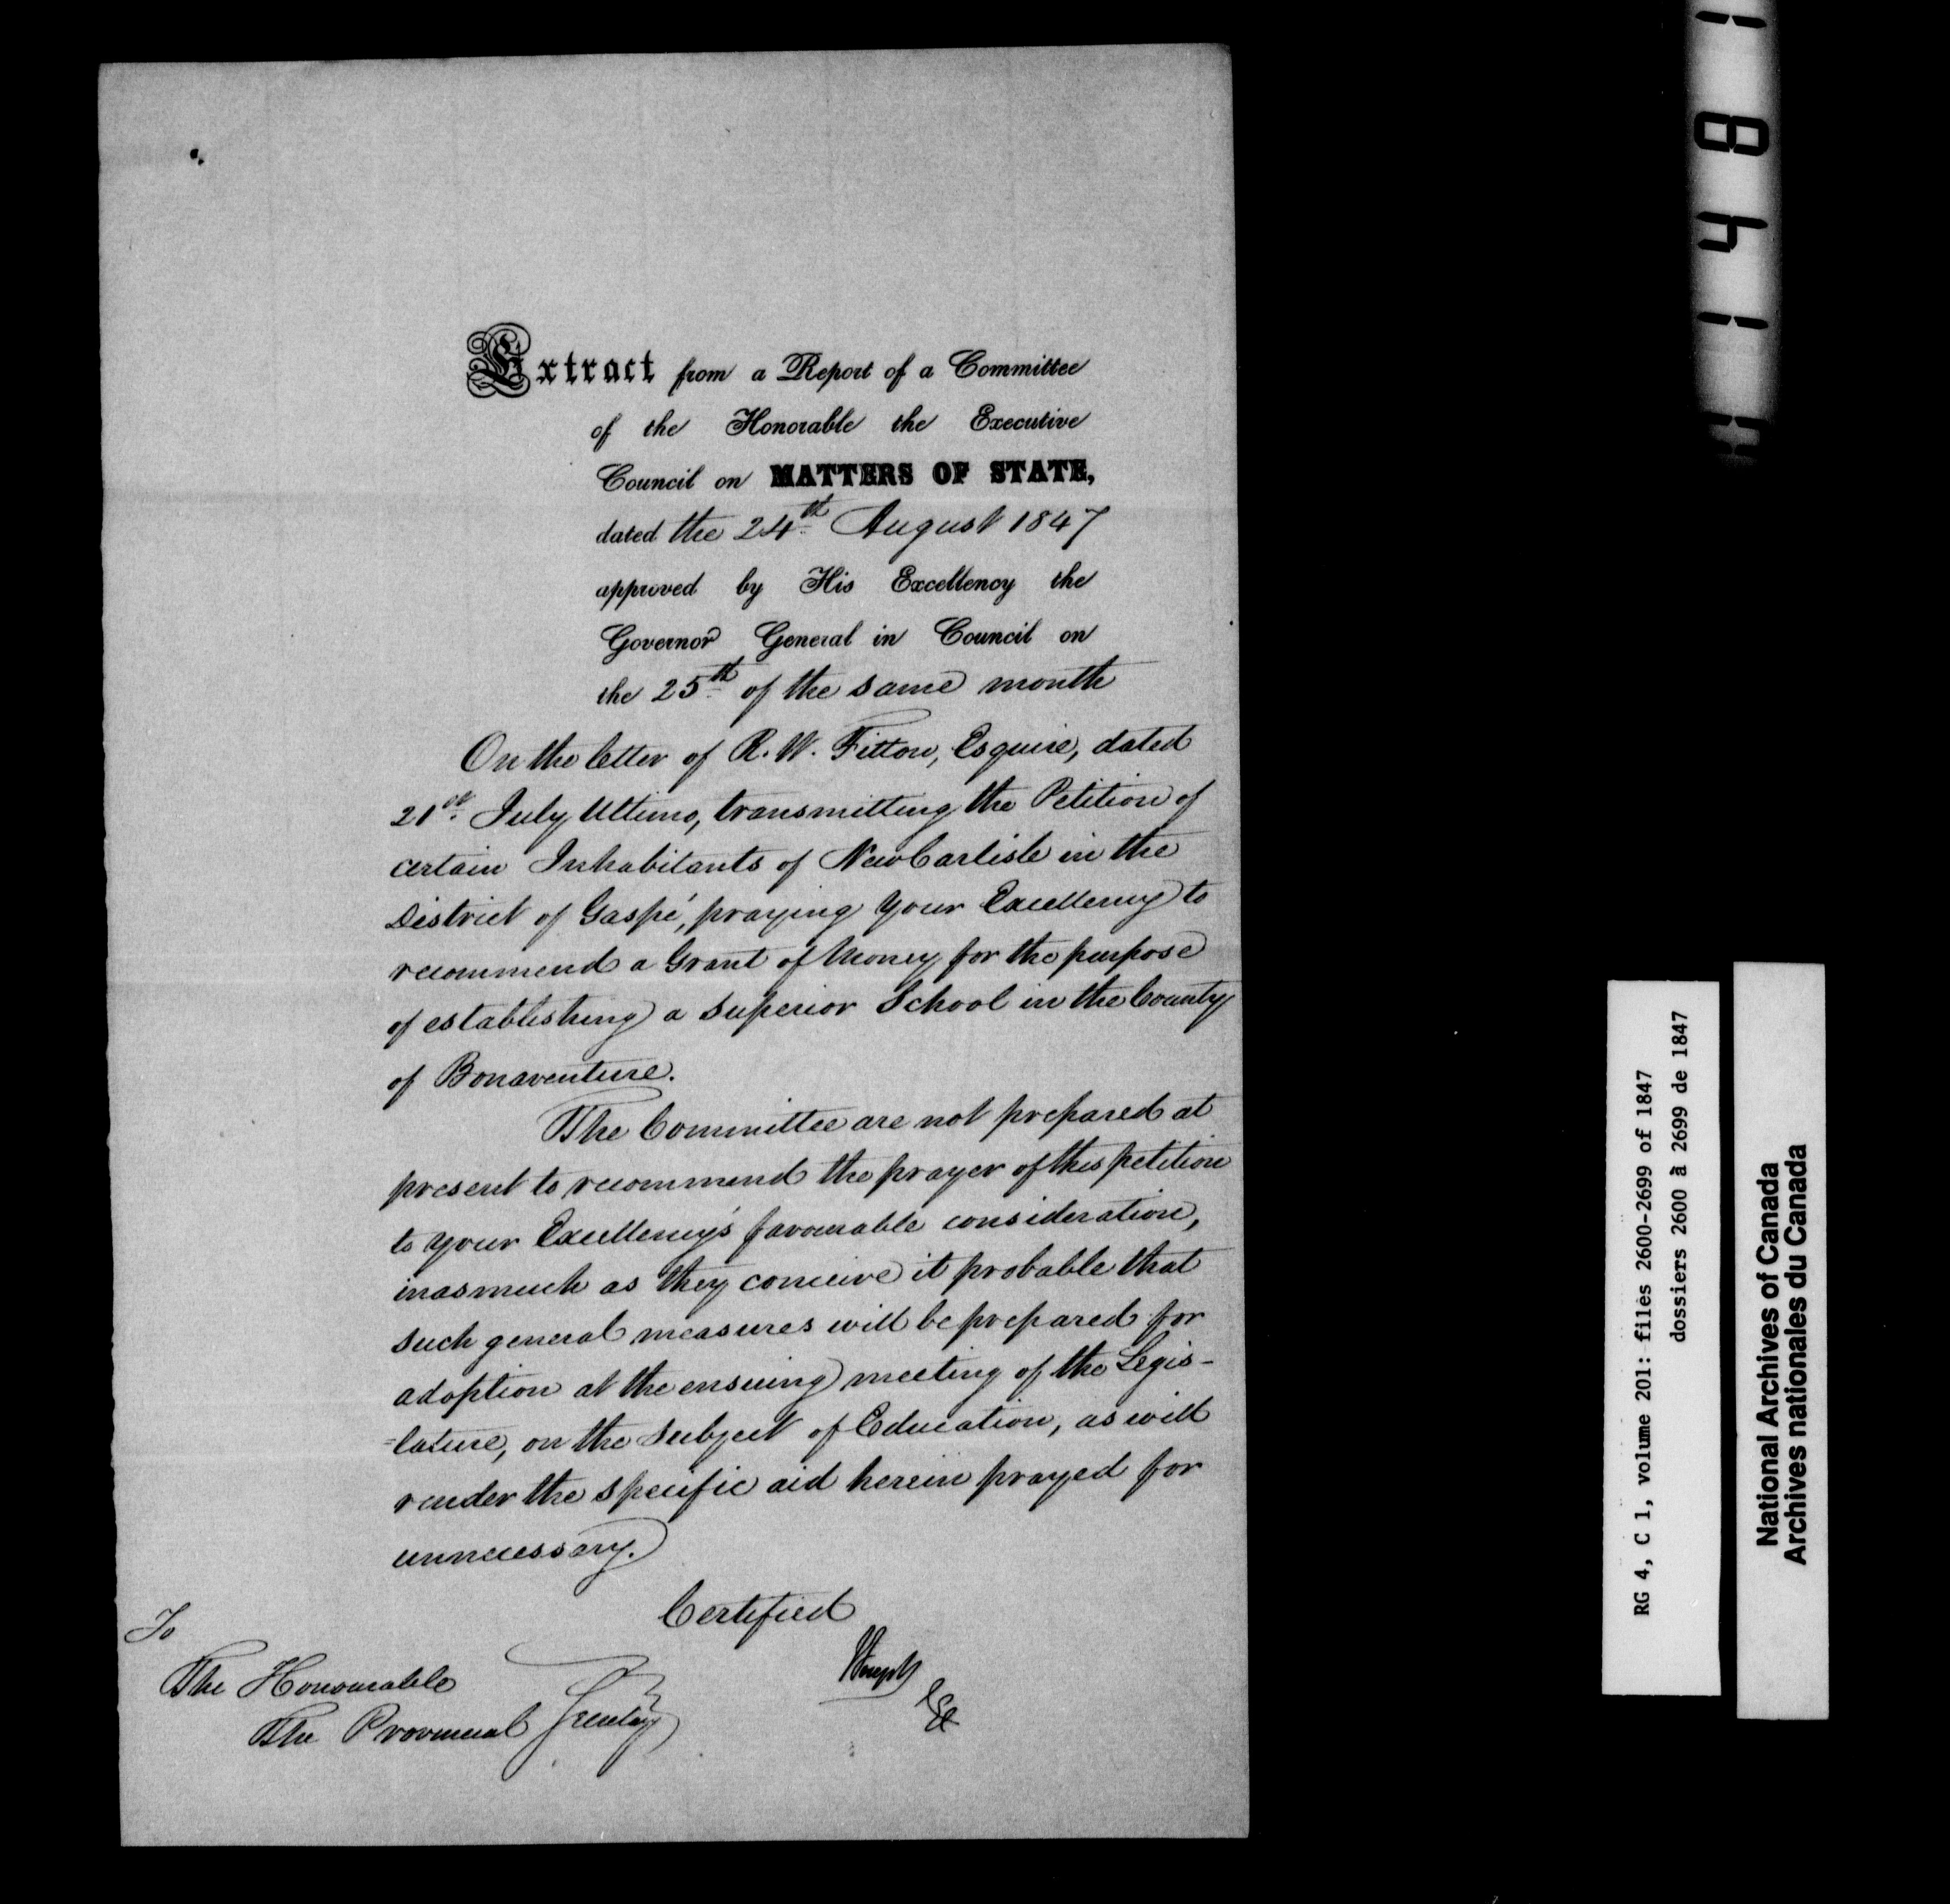 Extract from a Report of a Committee
of the Honorable the Executive
Council on MATTERS OF STATE,
dated the 24th August 1847
approved by His Excellency the
Governor General in Council on
the 25th of the same month
On the letter of R. W. Fitton, Esquire, dated
21st July Ultimo, transmitting the Petition of
certain Inhabitants of New Carlisle in the
District of Gaspé, praying Your Excellency to
recommend a Grant of Money for the purpose
of establishing a Superior School in the County
of Bonaventure.
The Committee are not prepared at
present to recommend the prayer of this petition
to Your Excellency's favourable consideration,
inasmuch as they conceive it probable that
such general measures will be prepared for
adoption at the ensuing meeting of the Legis-
=lature, on the Subject of Education, as will
render the specific aid herein prayed for
unnecessary.
Certified
To
The Honourable
The Provincial Secretary
1 8 4 1
RG 4, C 1, volume 201: files 2600-2699 of 1847
dossiers 2600 à 2699 de 1847
National Archives of Canada
Archives nationales du Canada